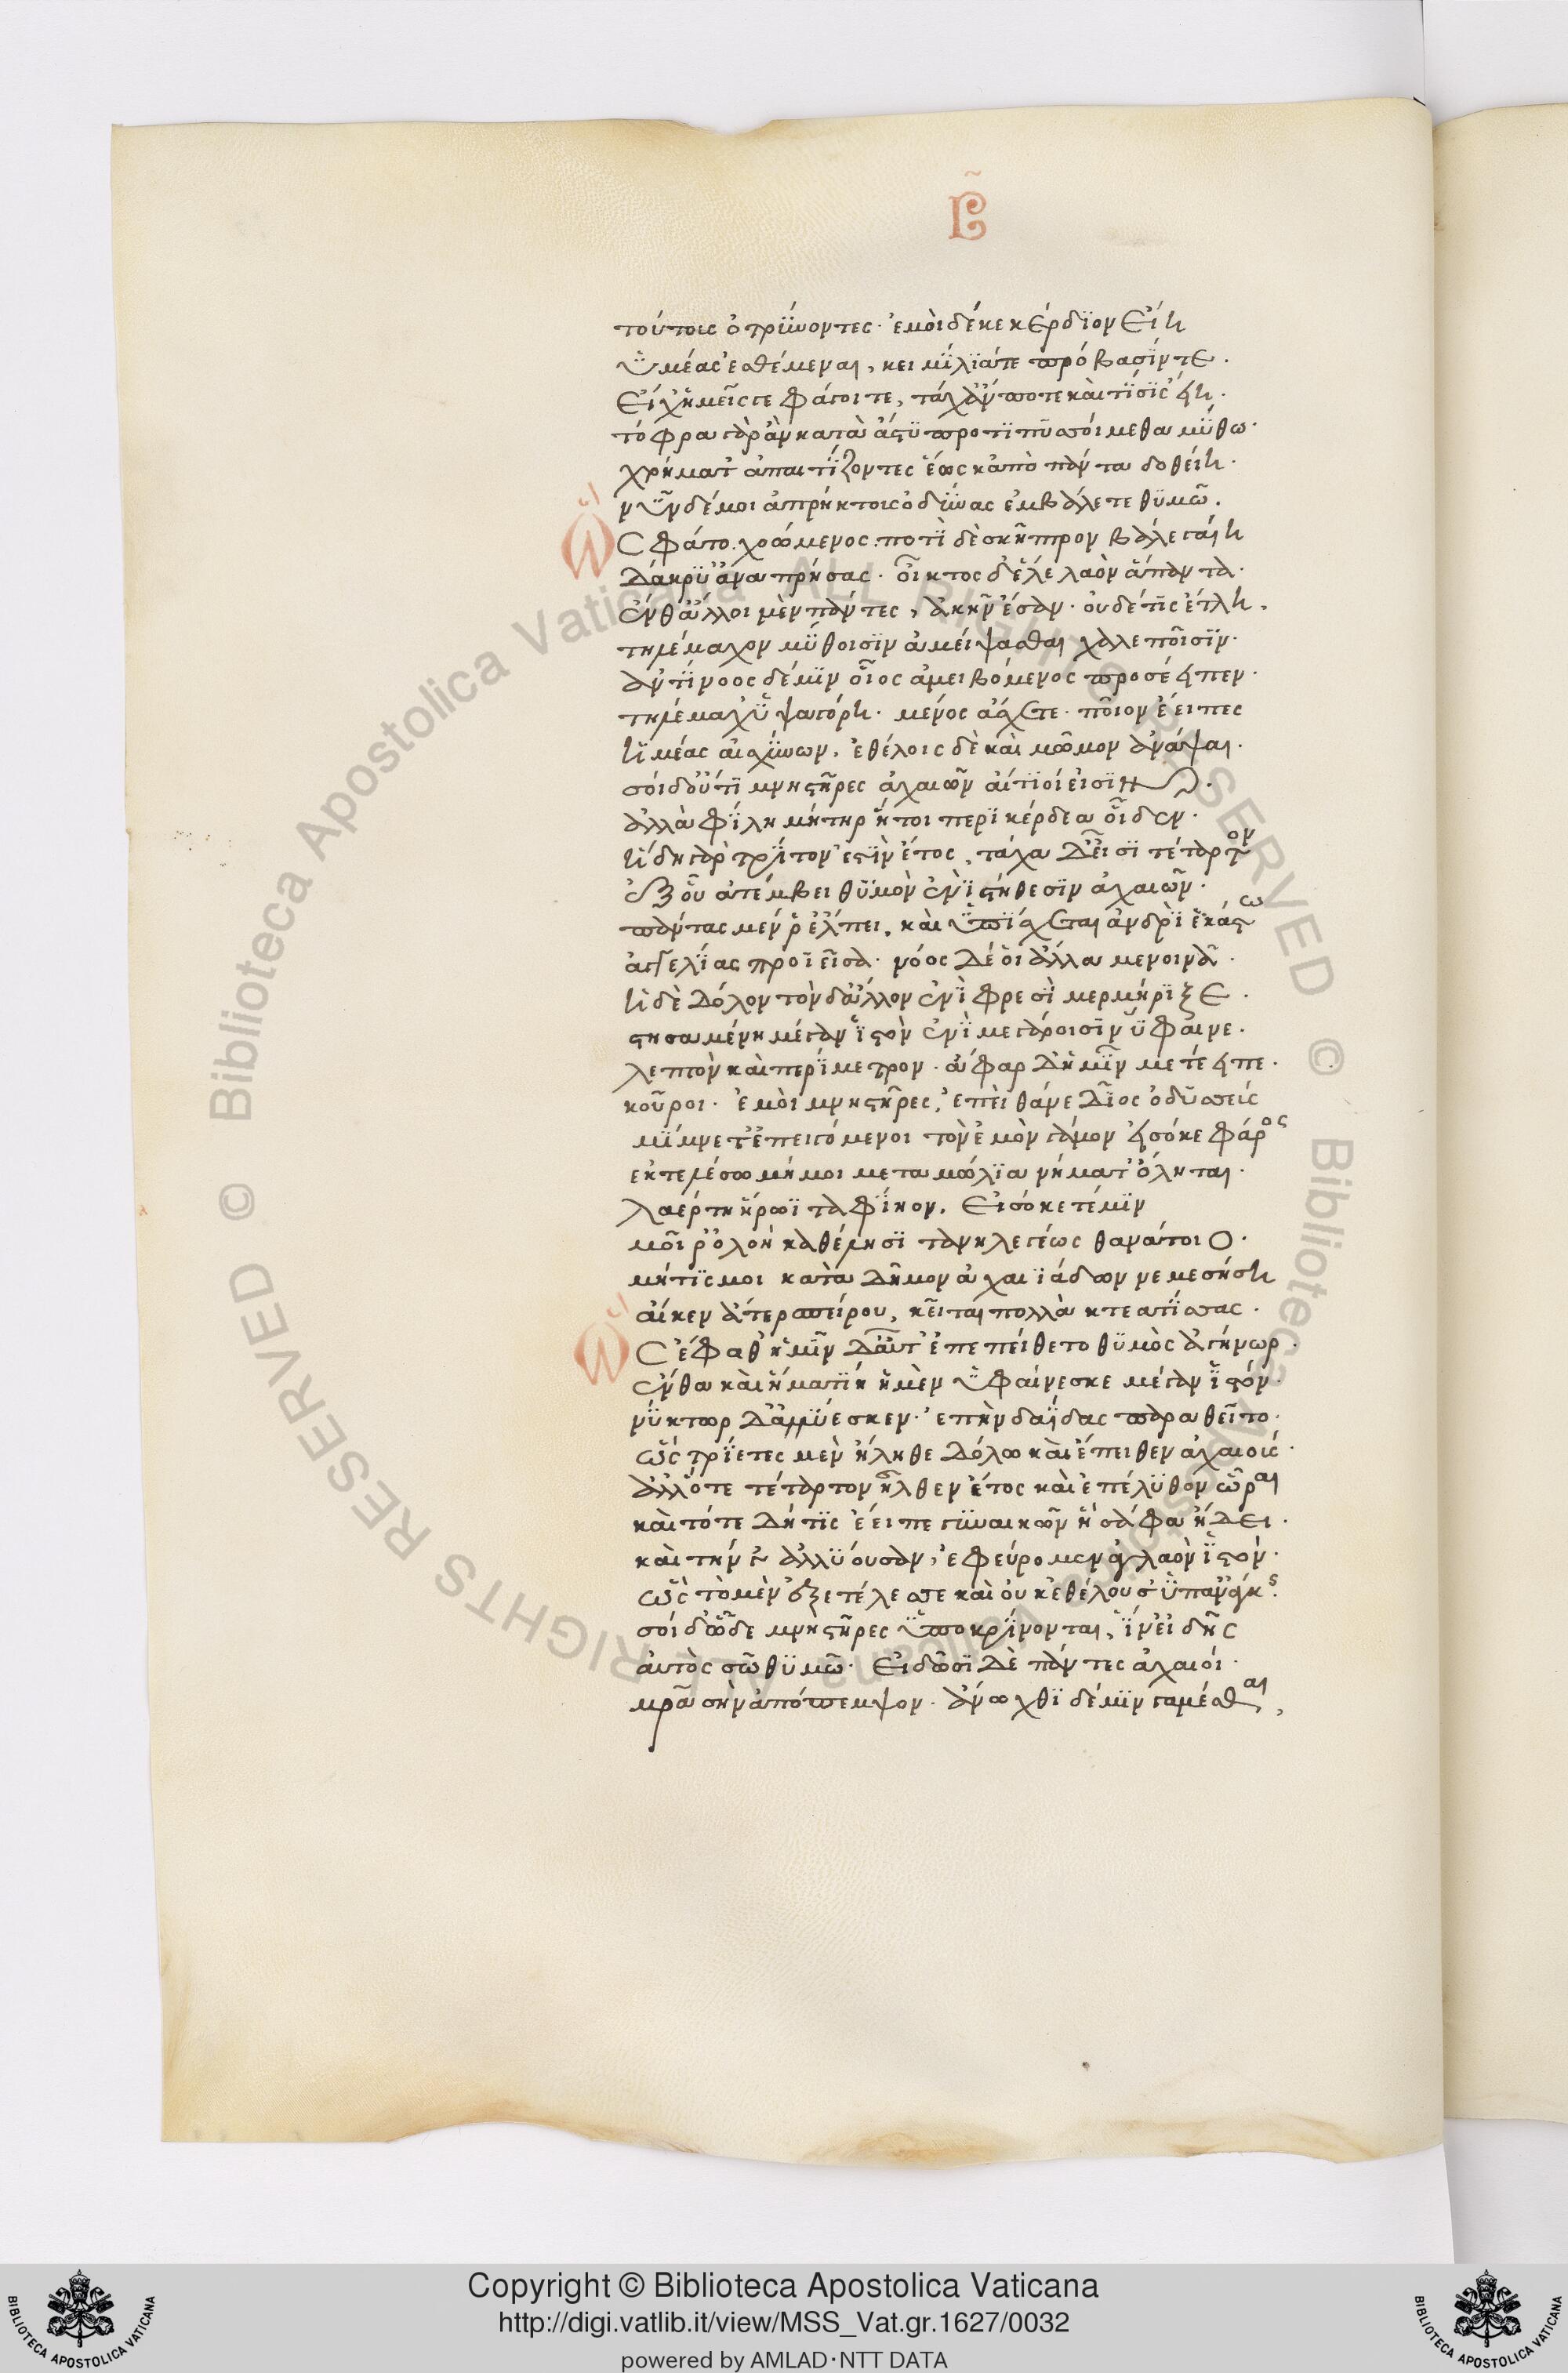 Β
τούτοις ὀτρύνοντες· ἐμοὶ δέ κε κέρδιον εἴη
ὑμέας ἐσθέμεναι, κειμήλιά τε πρόβασίν τε.
εἴ χ' ὑμεῖς γε φάγοιτε, τάχ' ἄν ποτε καὶ τίσις εἴη.
τόφρα γὰρ ἂν κατὰ ἄστυ ποτὶ πτυσσοίμεθα μύθω·
χρήματ' ἀπαιτίζοντες ἕως κ' ἀπὸ πάντα δοθείη·
νῦν δέ μοι ἀπρήκτους ὀδύνας ἐμβάλετε θυμῶ.
Ὣς φάτο χωόμενος· ποτὶ δὲ σκῆπτρον βάλε γαίη
δάκρυ' ἀναπρήσας· οἶκτος δ' ἕλε λαὸν ἅπαντα·
ἔνθ' ἄλλοι μὲν πάντες, ἀκὴν ἔσαν· οὐδέ τις ἔτλη,
τηλέμαχον μύθοισιν ἀμείψασθαι χαλεποῖσιν·
ἀντίνοος δέ μιν οἶος ἀμειβόμενος προσέειπεν·
τηλέμαχ' ὑψαγόρη· μένος ἄσχετε· ποῖον ἔειπες
ἡμέας αἰσχύνων, ἐθέλοις δὲ καὶ μῶμον ἀνάψαι.
σοὶ δ' οὔτι μνηστῆρες ἀχαιῶν αἴτιοί εἰσιν.
ἀλλὰ φίλη μήτηρ ἥ τοι περὶ κέρδεα οἶδεν.
ἤδη γὰρ τρίτον ἐστὶν ἔτος, τάχα δ' εἶσι τέταρτον
ἐξ οὗ ἀτέμβει θυμὸν ἐνὶ στήθεσιν ἀχαιῶν.
πάντας μέν ῥ' ἔλπει, καὶ ὑπίσχεται ἀνδρὶ ἑκάστω
ἀγγελίας προϊεῖσα· νόος δέ οἱ ἄλλα μενοινᾶ.
ἡ δὲ δόλον τόνδ' ἄλλον ἐνὶ φρεσὶ μερμήριξε.
στησαμένη μέγαν ἱστὸν ἐνὶ μεγάροισιν ὕφαινε.
λεπτὸν καὶ περίμετρον· ἄφαρ δ' ἡμῖν μετέειπε.
κοῦροι· ἐμοὶ μνηστῆρες, ἐπεὶ θάνε δῖος ὀδυσσεύς
μίμνετ' ἐπειγόμενοι τὸν ἐμὸν γάμον εἰσόκε φάρος
ἐκτελέσω μή μοι μεταμώλια νήματ' ὄληται.
λαέρτη ἥρωϊ ταφήϊον, εἰσόκε τέ μιν
μοῖρ' ὀλοὴ καθέλησι τανηλεγέως θανάτοιο.
μήτις μοι κατὰ δῆμον ἀχαιϊάδων νεμεσήση
αἴ κεν ἄτερ σπείρου, κεῖται πολλὰ κτεατίσσας.
Ὣς ἔφαθ' ἡμῖν δ' αὖτ' ἐπεπείθετο θυμὸς ἀγήνωρ.
ἔνθα καὶ ἠματίη ἡ μὲν ὑφαίνεσκε μέγαν ἱστόν.
νύκτωρ δ' ἀλλύεσκεν· ἐπὴν δαΐδας παραθεῖτο.
ὣς τρίετες μὲν ἔληθε δόλω καὶ ἔπειθεν ἀχαιούς.
ἀλλ' ὅτε τέταρτον ἦλθεν ἔτος καὶ ἐπέλυθον ὧραι
καὶ τότε δή τις ἔειπε γυναικῶν ἣ σάφα ἤδει.
καὶ τήν γ' ἀλλύουσαν, ἐφεύρομεν ἀγλαὸν ἱστόν.
ὣς τὸ μὲν ἐξετέλεσσε καὶ οὐκ ἐθέλουσ' ὑπανάγκης.
σοὶ δ' ὧδε μνηστῆρες ὑποκρίνονται, ἵν' εἰδῆς
αὐτὸς σῶ θυμῶ· εἰδῶσι δὲ πάντες ἀχαιοί.
μρα σὴν ἀπόπεμψον· ἄνωχθι δέ μιν γαμέεσθαι,
Copyright © Biblioteca Apostolica Vaticana
http://digi.vatlib.it/view/MSS_Vat.gr.1627/0032
powered by AMLAD·NTT DATA